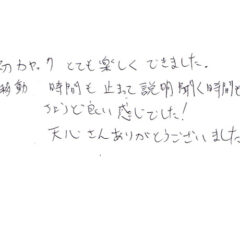 初カヤック とても楽しく できました。
移動 時間も 止まって 説明 聞く時間も
ちょうど良い 感じでした!
天心さんありがとうございました